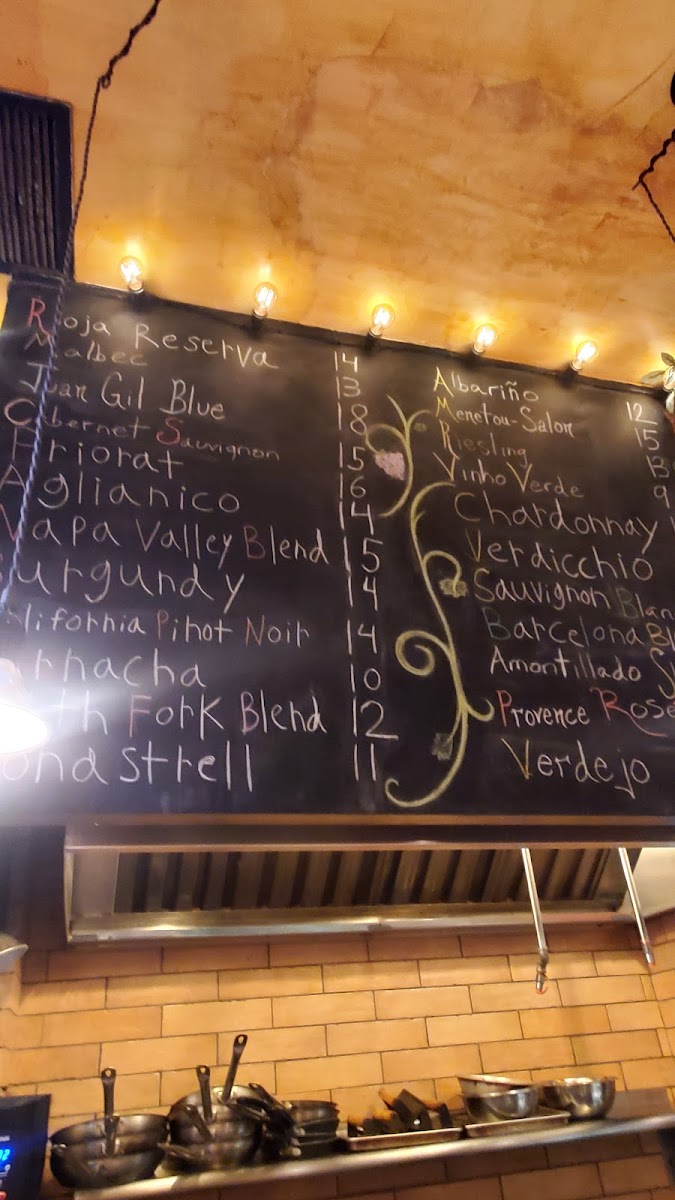 Rioja Reserva 14
Malbec 13
Juan Gil Blue 18
Cabernet Sauvignon 15
Priorat 16
Aglianico 14
Napa Valley Blend 15
urgundy 14
lifornia Pinot Noir 14
rnacha 10
th Fork Blend 12
onastrell 11
Albariño 12
Menetou-Salon 15
Riesling 13
Vinho Verde 9
Chardonnay
Verdicchio
Sauvignon Blan
Barcelona Bl
Amontillado
Provence Rose
Verdejo